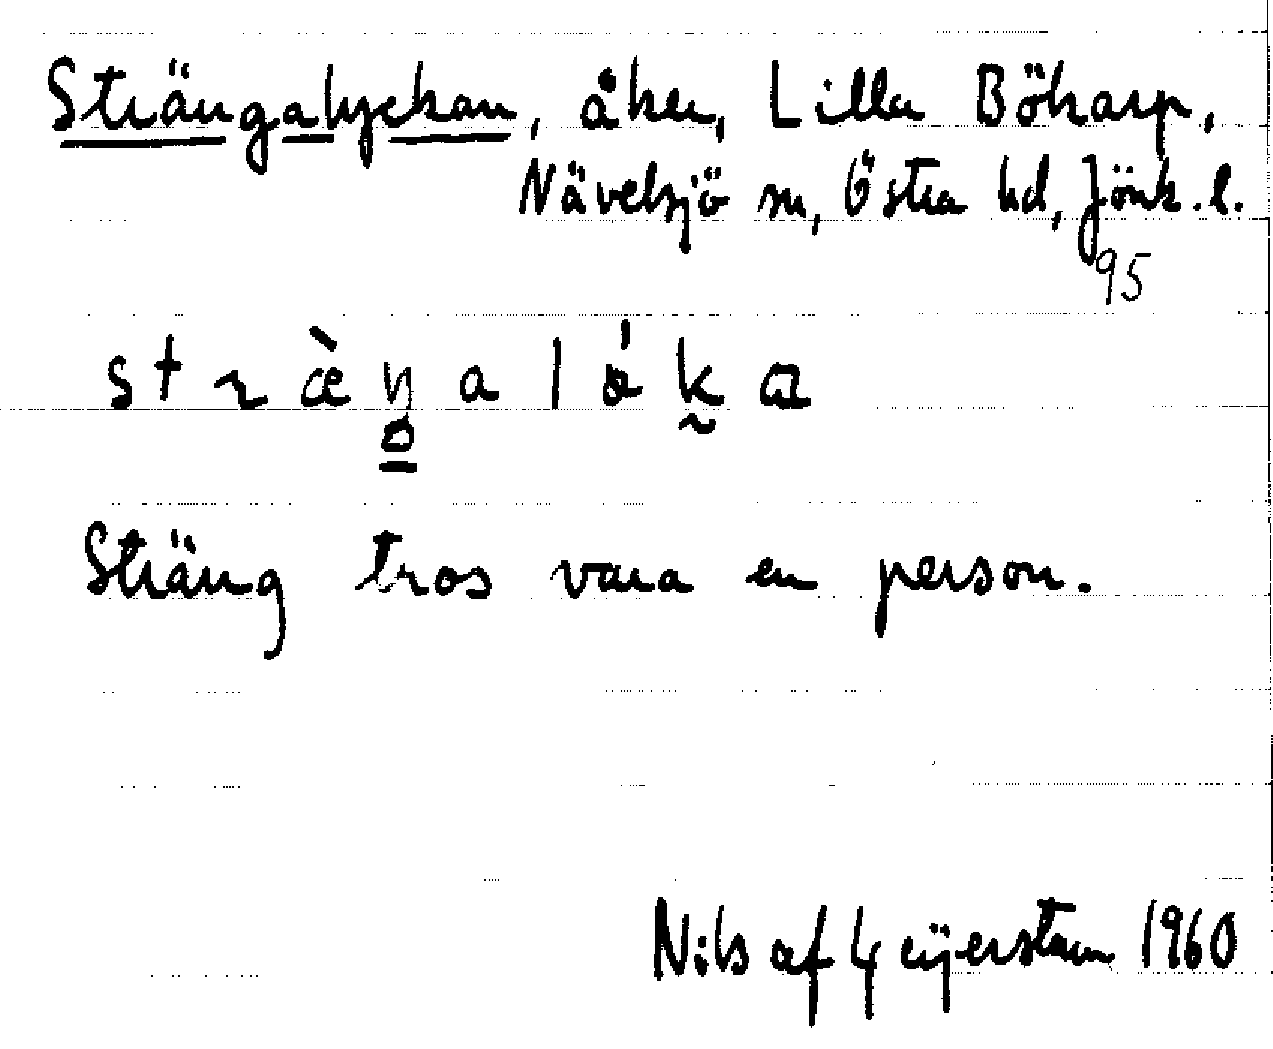 Strängalyckan, åker, Lilla Bökarp,
Nävelsjö sn, Östra hd, Jönk. l.
95
stræ̀ŋalǿka
Sträng tros vara en person.
Nils af Geijerstam 1960